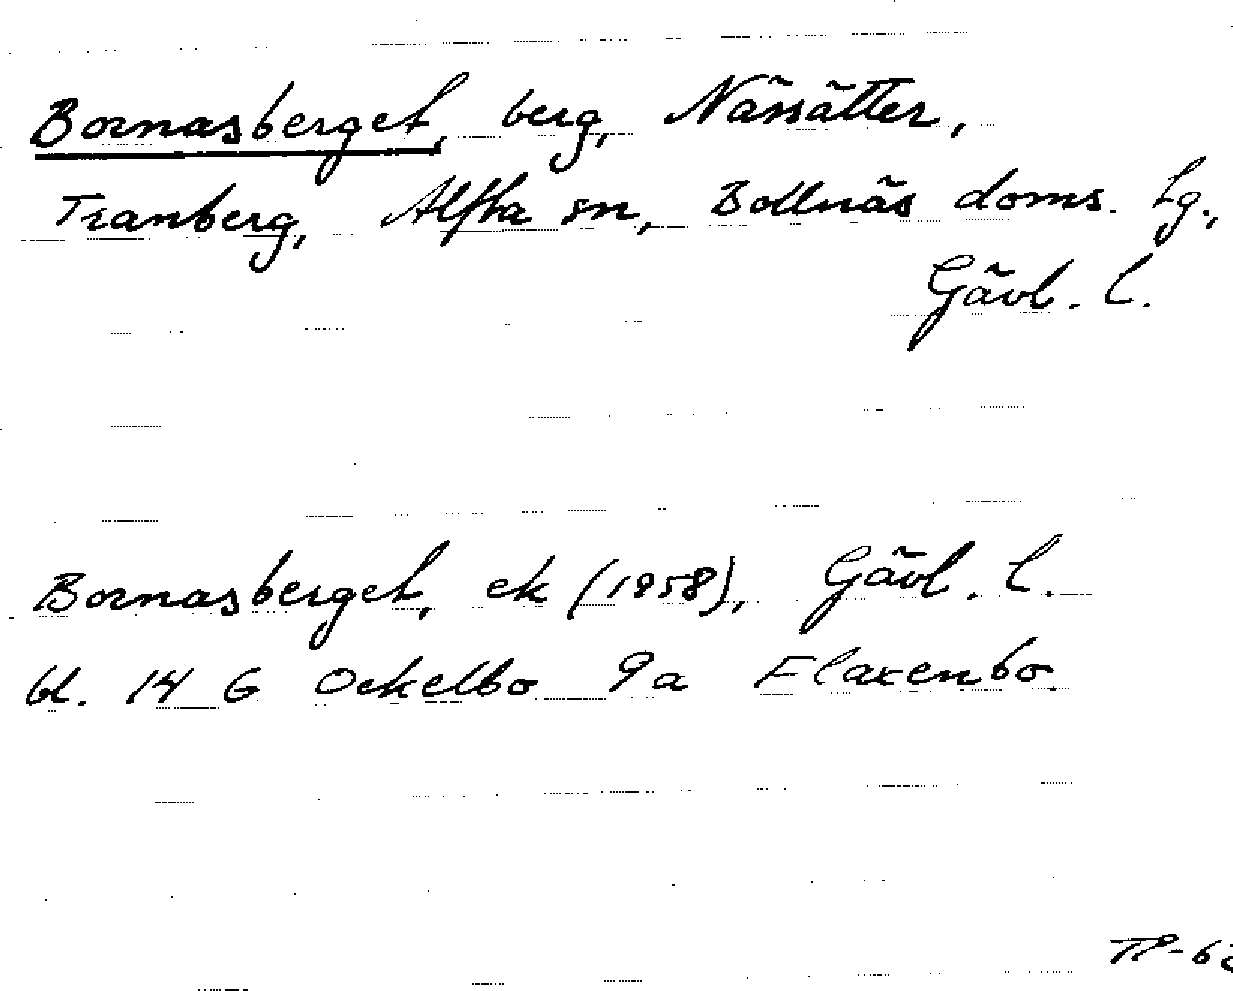 Bornasberget, berg, Nässätter,
Tranberg, Alfta sn, Bollnäs doms. Lg.,
Gävl. l.
Bornasberget, ek (1958), Gävl. l.
bl. 14 G Ockelbo 9a Flaxenbo.